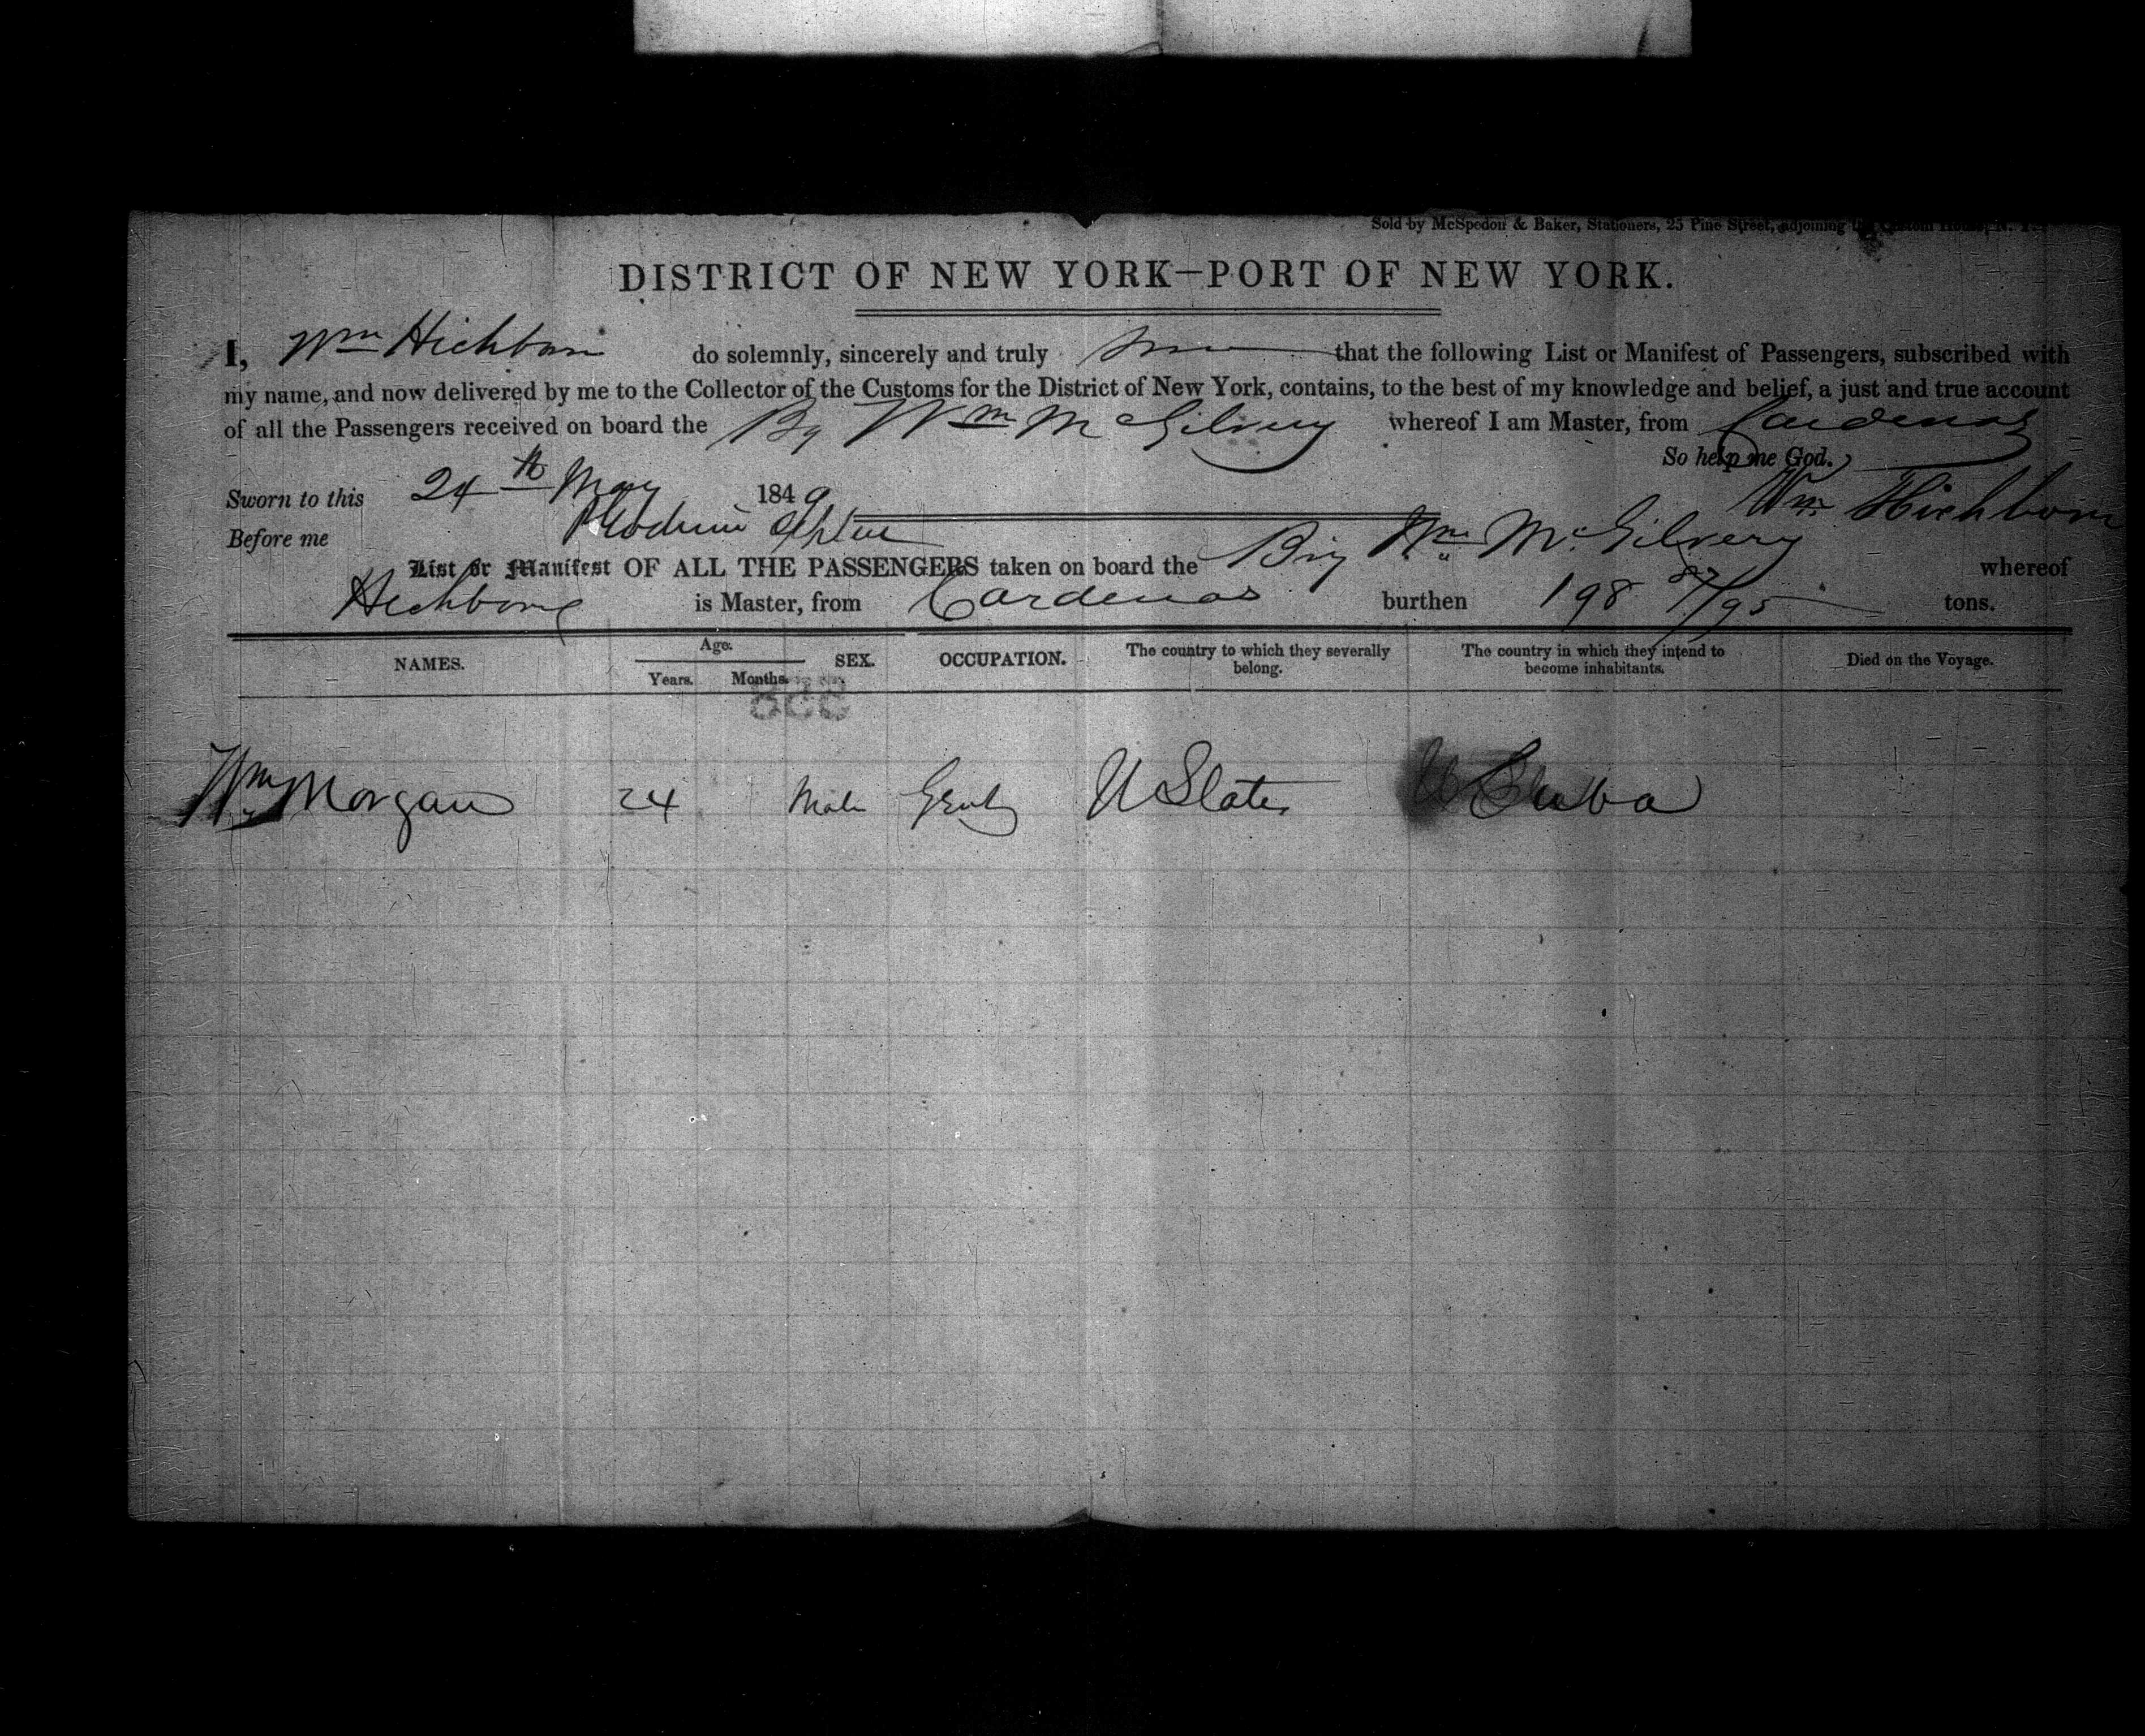 Sold by McSpedon & Baker, Stationers, 25 Pine Street, adjoining the Custom House, N. Y.
DISTRICT OF NEW YORK—PORT OF NEW YORK.
I, Wm Hichborn do solemnly, sincerely and truly that the following List or Manifest of Passengers, subscribed with
my name, and now delivered by me to the Collector of the Customs for the District of New York, contains, to the best of my knowledge and belief, a just and true account
of all the Passengers received on board the Bg Wm McGilvery whereof I am Master, from Cardenas
So help me God.
Sworn to this 24th May 1849 Wm Hichborn
Before me
List or Manifest OF ALL THE PASSENGERS taken on board the Brig Wm McGilvery whereof
Hichborn is Master, from Cardenas burthen 198 /95 tons.
NAMES. Age. Years. Months. SEX. OCCUPATION. The country to which they severally belong. The country in which they intend to become inhabitants. Died on the Voyage.
Wm Morgan 24 Male U States Cuba